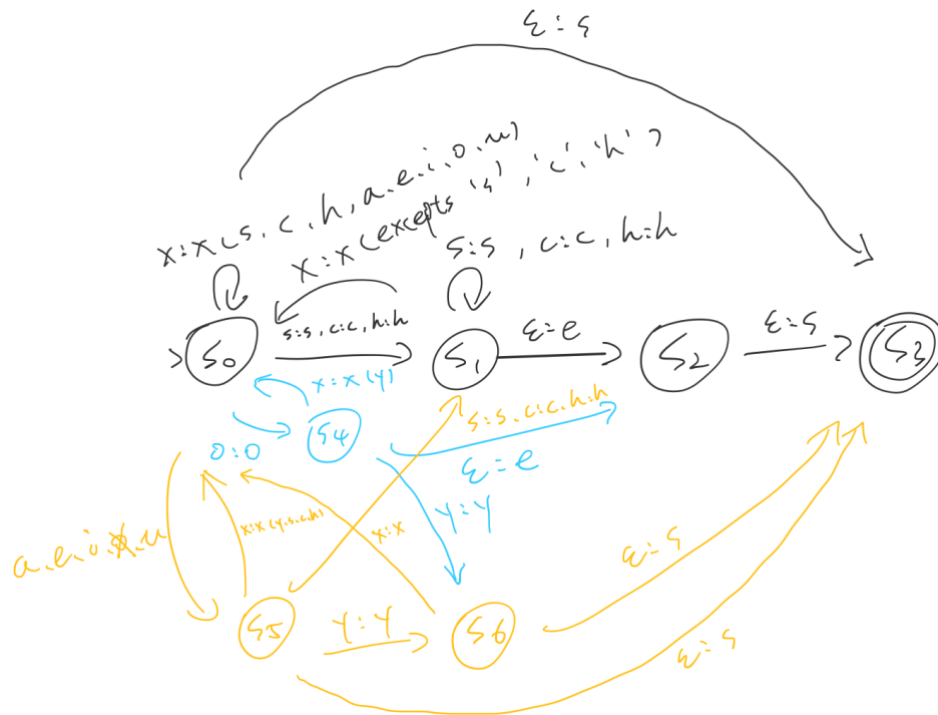 ε:s
x:x(s,c,h,a.e.i.o.u)
x:x(excepts 's','c','h')
s:s, c:c, h:h
s:s,c:c,h:h
ε:e
ε:s
S0
S1
S2
S3
x:x(y)
S4
s:s.c:c.h:h
o:o
ε:e
y:y
x:x(y.s.c.h)
x:x
a.e.i.o.u
ε:s
S5
y:y
S6
ε:s